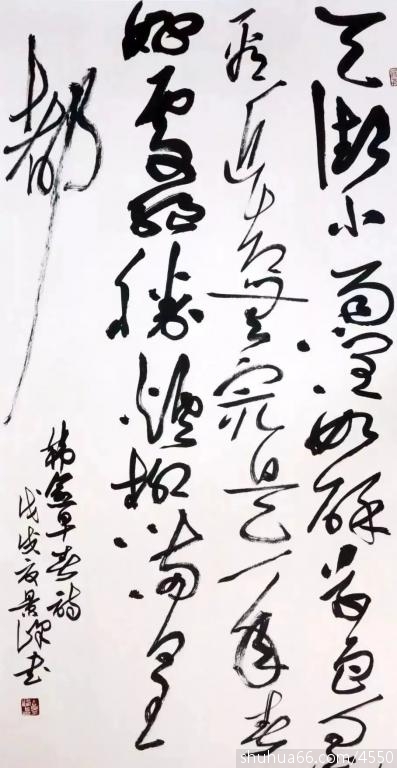 天街小雨潤如酥草色遥
看近却無最是一年春
好處絕勝煙柳滿皇
都
韓愈早春詩
戊戌夏景书
shuhua66.com/4550